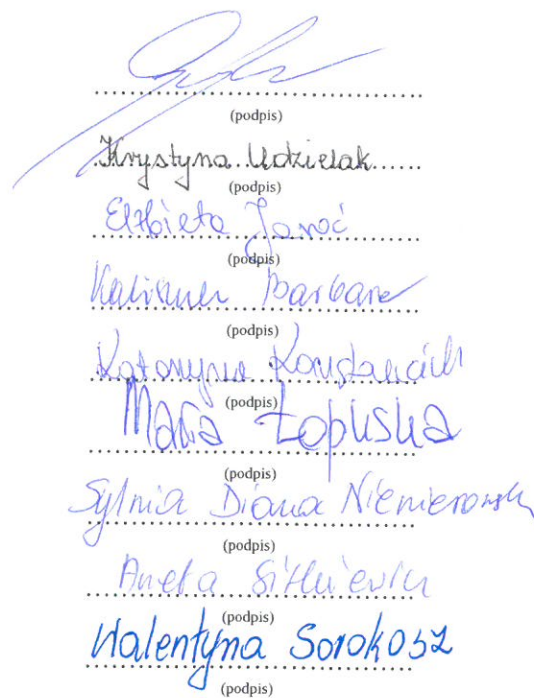 (podpis)
Krystyna Udzielak
(podpis)
Elżbieta Janoć
(podpis)
Barbara
(podpis)
Katarzyna
(podpis)
Maria Łopuska
(podpis)
Sylwia Diana
(podpis)
Aneta Sitkiewicz
(podpis)
Walentyna Sorokosz
(podpis)